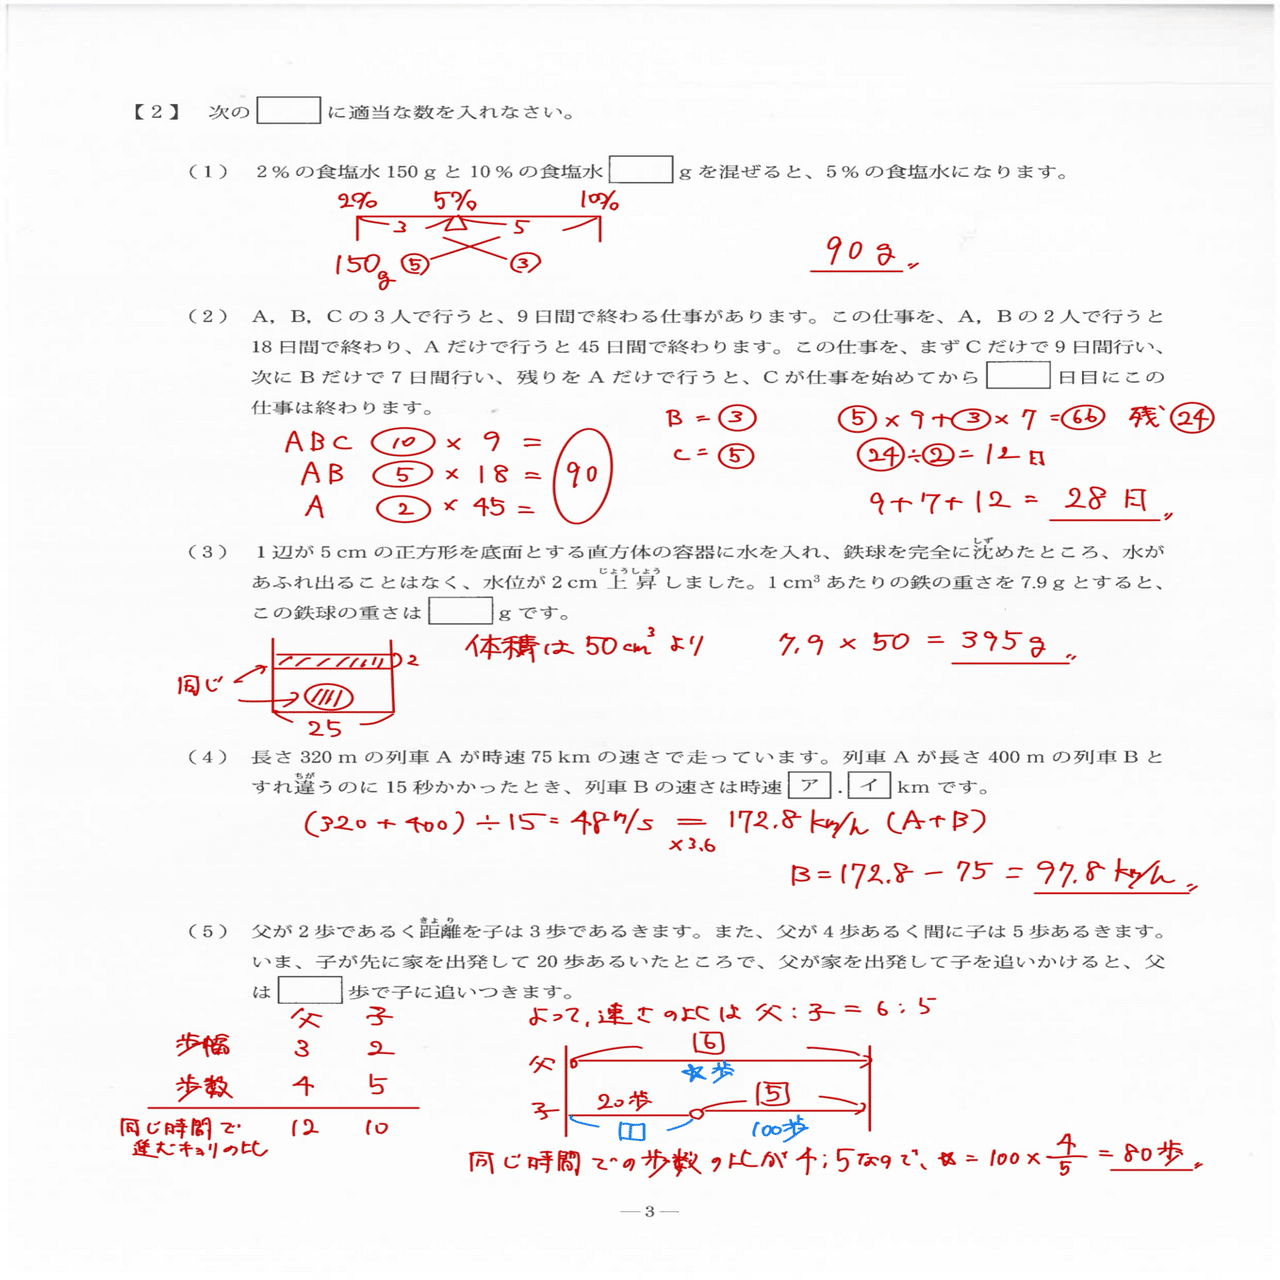 【2】 次の□に適当な数を入れなさい。
(1) 2%の食塩水150gと10%の食塩水□gを混ぜると、5%の食塩水になります。
2% 5% 10%
3 5
150g ⑤ ③
90g
(2) A, B, Cの3人で行うと、9日間で終わる仕事があります。この仕事を、A, Bの2人で行うと
18日間で終わり、Aだけで行うと45日間で終わります。この仕事を、まずCだけで9日間行い、
次にBだけで7日間行い、残りをAだけで行うと、Cが仕事を始めてから□日目にこの
仕事は終わります。
B = ③ ⑤ × 9 + ③ × 7 = 66 残 24
ABC ⑩ × 9 =
C = ⑤ 24 ÷ ② = 12日
AB ⑤ × 18 = 90
A ② × 45 =
9 + 7 + 12 = 28日
(3) 1辺が5cmの正方形を底面とする直方体の容器に水を入れ、鉄球を完全に沈めたところ、水が
しず
あふれ出ることはなく、水位が2cm上昇しました。1cm³あたりの鉄の重さを7.9gとすると、
じょうしょう
この鉄球の重さは□gです。
体積は50cm³より 7.9 × 50 = 395g
2
同じ
25
(4) 長さ320mの列車Aが時速75kmの速さで走っています。列車Aが長さ400mの列車Bと
すれ違うのに15秒かかったとき、列車Bの速さは時速 ア . イ kmです。
ちが
(320 + 400) ÷ 15 = 48m/s = 172.8km/h (A+B)
×3.6
B = 172.8 - 75 = 97.8km/h
(5) 父が2歩であるく距離を子は3歩であるきます。また、父が4歩あるく間に子は5歩あるきます。
きょり
いま、子が先に家を出発して20歩あるいたところで、父が家を出発して子を追いかけると、父
は□歩で子に追いつきます。
父 子
歩幅 3 2
歩数 4 5
同じ時間で
進むキョリの比 12 10
よって、速さの比は 父:子 = 6:5
父 6
☆歩
子 20歩 5
1 100歩
同じ時間での歩数の比が4:5なので、☆ = 100 × 4/5 = 80歩
— 3 —